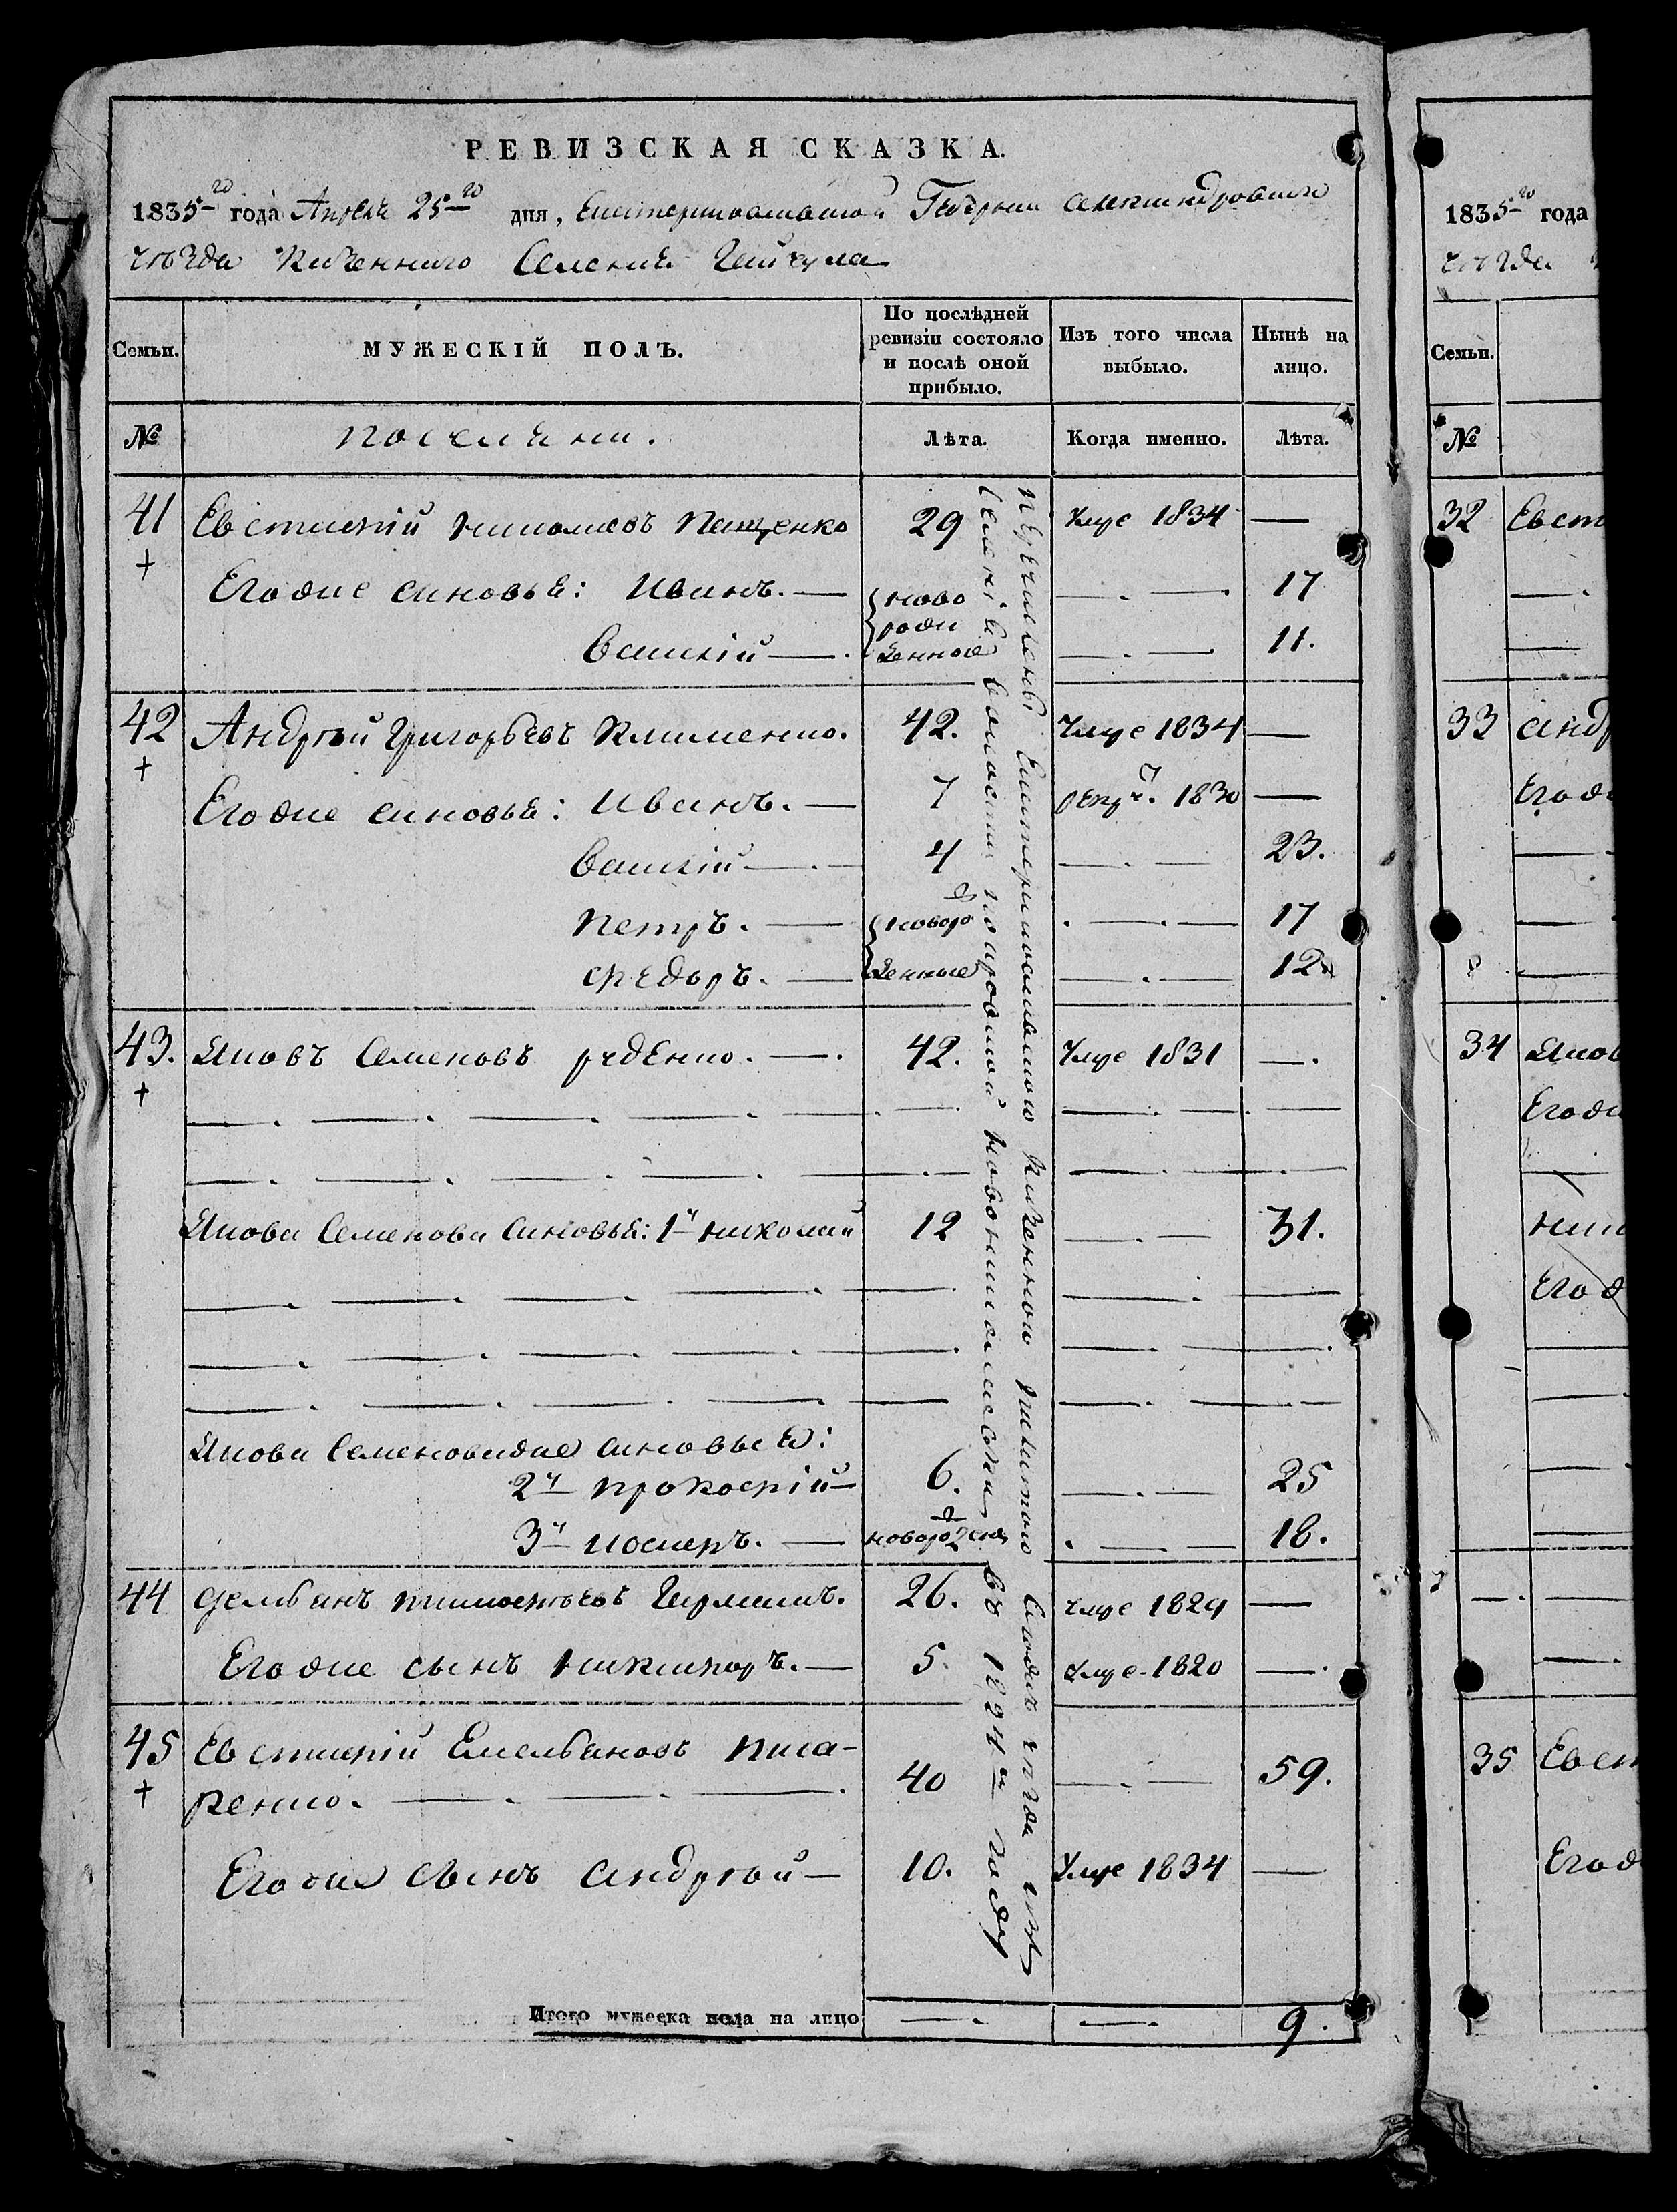 РЕВИЗСКАЯ СКАЗКА.
1835го года Апреля 25го дня, Екатеринославской Губернии Александровского
уѣзда Казенного Селения Гайчула
Семьи.
МУЖЕСКІЙ ПОЛЪ.
По послѣдней ревизіи состояло и послѣ оной прибыло.
Изъ того числа выбыло.
Нынѣ на лицо.
№
поселяни.
Лѣта.
Когда именно.
Лѣта.
41 Евстафій Николаевъ Пащенко 29 Умре 1834 —
Его же синовья: Иванъ. — новорожденные — 17
Василій — — 11.
42 Андрей Григорьевъ Клименко. 42. Умре 1834 —
Его же синовья: Иванъ. — 7 рекр. 1830 —
Василій — 4 — 23.
Петръ. — новорожденные — 17
Федоръ. — — 12
43. Яковъ Семеновъ руденко. — 42. Умре 1831 —
Якова Семенова синовья: 1й николай 12 — 31.
Якова Семенова же синовья:
2й прокофій — 6. — 25
3й иосифъ. — новорожден — 18.
44 Демьянъ тимофеевъ 26. Умре 1829 —
Его же сынъ никифоръ. — 5. Умре 1820 —
45 Евстафій Емельяновъ писа-
ренко. — 40 — 59.
Его же сынъ Андрей — 10. Умре 1834 —
Перечислены Екатеринославской Казенной палатою сюда уезда из
селенія волости новониколаевки в 1824м году
Итого мужеска пола на лицо — — 9.
1835го года
уѣзда
Семьи.
№
32 Евст
33 Андр
Его
34 Яков
Его
Его
35 Евст
Его